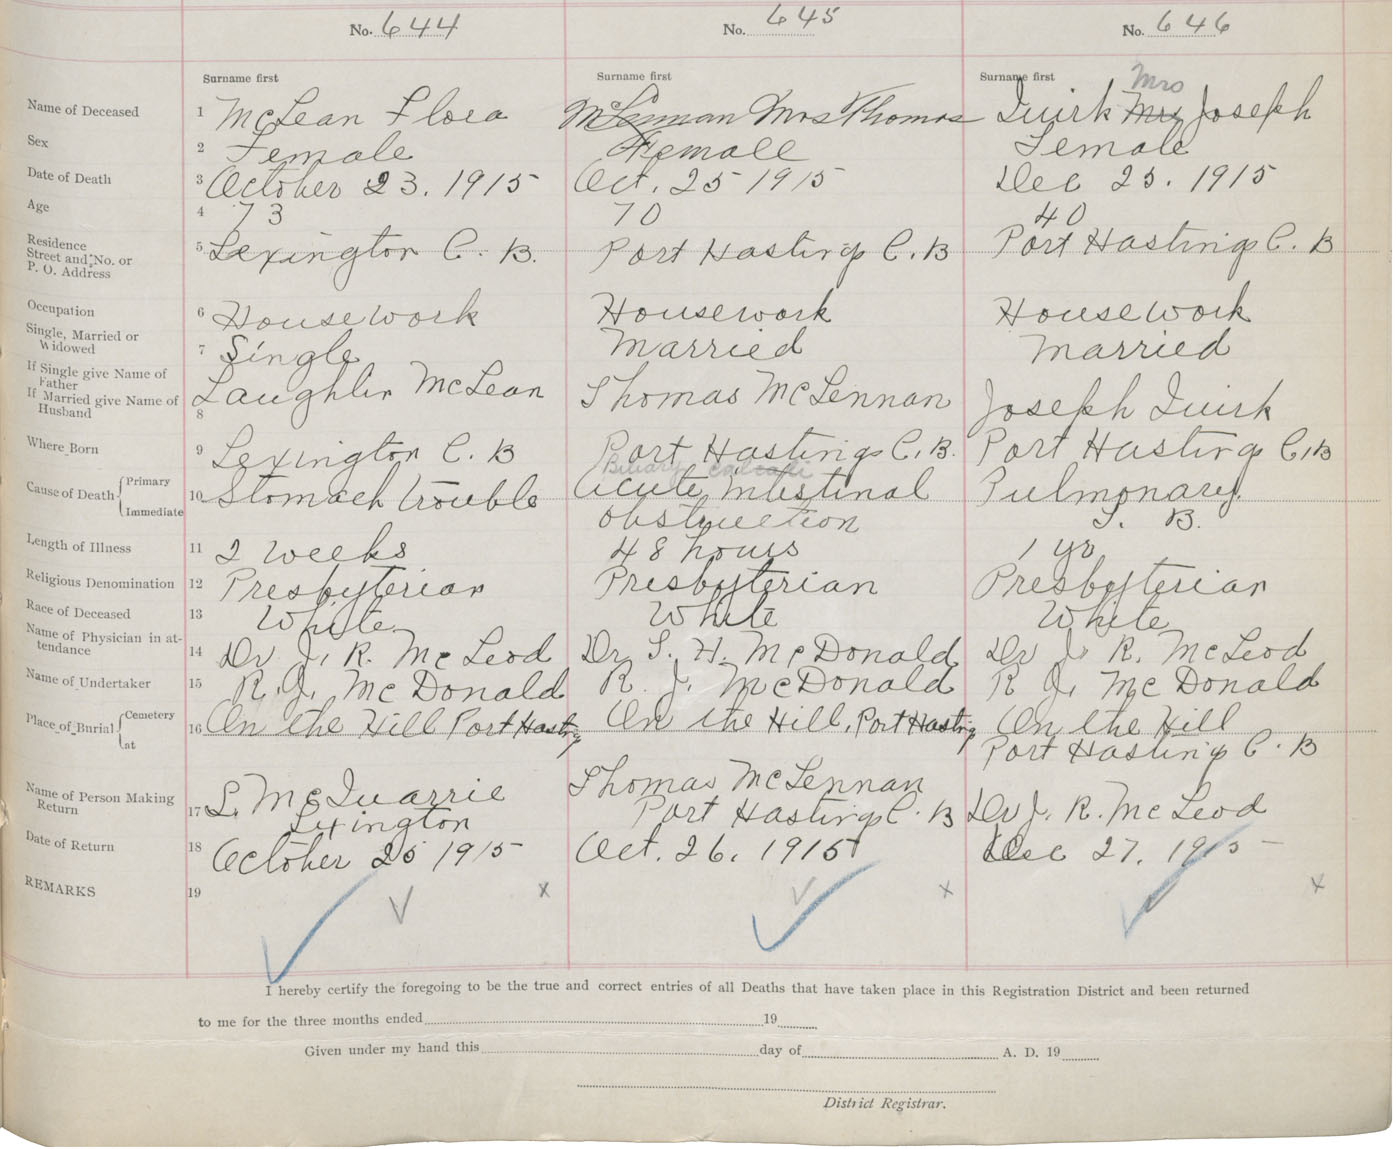 No. 644 No. 645 No. 646
Surname first Surname first Surname first
Mrs
Name of Deceased 1 McLean Flora McLennan Mrs Thomas Quirk Mrs Joseph
Sex 2 Female Female Female
Date of Death 3 October 23. 1915 Oct. 25 1915 Dec 25. 1915
Age 4 73 70 40
Residence
Street and No. or
P. O. Address 5 Lexington C. B. Port Hastings C. B Port Hastings C. B
Occupation 6 Housework Housework Housework
Single, Married or
Widowed 7 Single Married Married
If Single give Name of
Father
If Married give Name of
Husband 8 Laughlin McLean Thomas McLennan Joseph Quirk
Where Born 9 Lexington C. B Port Hastings C. B. Port Hastings C. B
Biliary calculi
Cause of Death { Primary
Immediate 10 Stomach trouble Acute Intestinal Pulmonary
obstruction T. B.
Length of Illness 11 2 weeks 48 hours 1 yr
Religious Denomination 12 Presbyterian Presbyterian Presbyterian
Race of Deceased 13 White White White
Name of Physician in at-
tendance 14 Dr J. R. McLeod Dr S. H. McDonald Dr J. R. McLeod
Name of Undertaker 15 R. J. McDonald R. J. McDonald R J. McDonald
Place of Burial { Cemetery
at 16 On the Hill Port Hastings On the Hill, Port Hastings On the Hill
Port Hastings C. B
Name of Person Making
Return 17 L. McQuarrie Thomas McLennan Dr J. R. McLeod
Lexington Port Hastings C. B
Date of Return 18 October 25 1915 Oct. 26. 1915 Dec 27. 1915
REMARKS 19 x x x
I hereby certify the foregoing to be the true and correct entries of all Deaths that have taken place in this Registration District and been returned
to me for the three months ended 19
Given under my hand this day of A. D. 19
District Registrar.